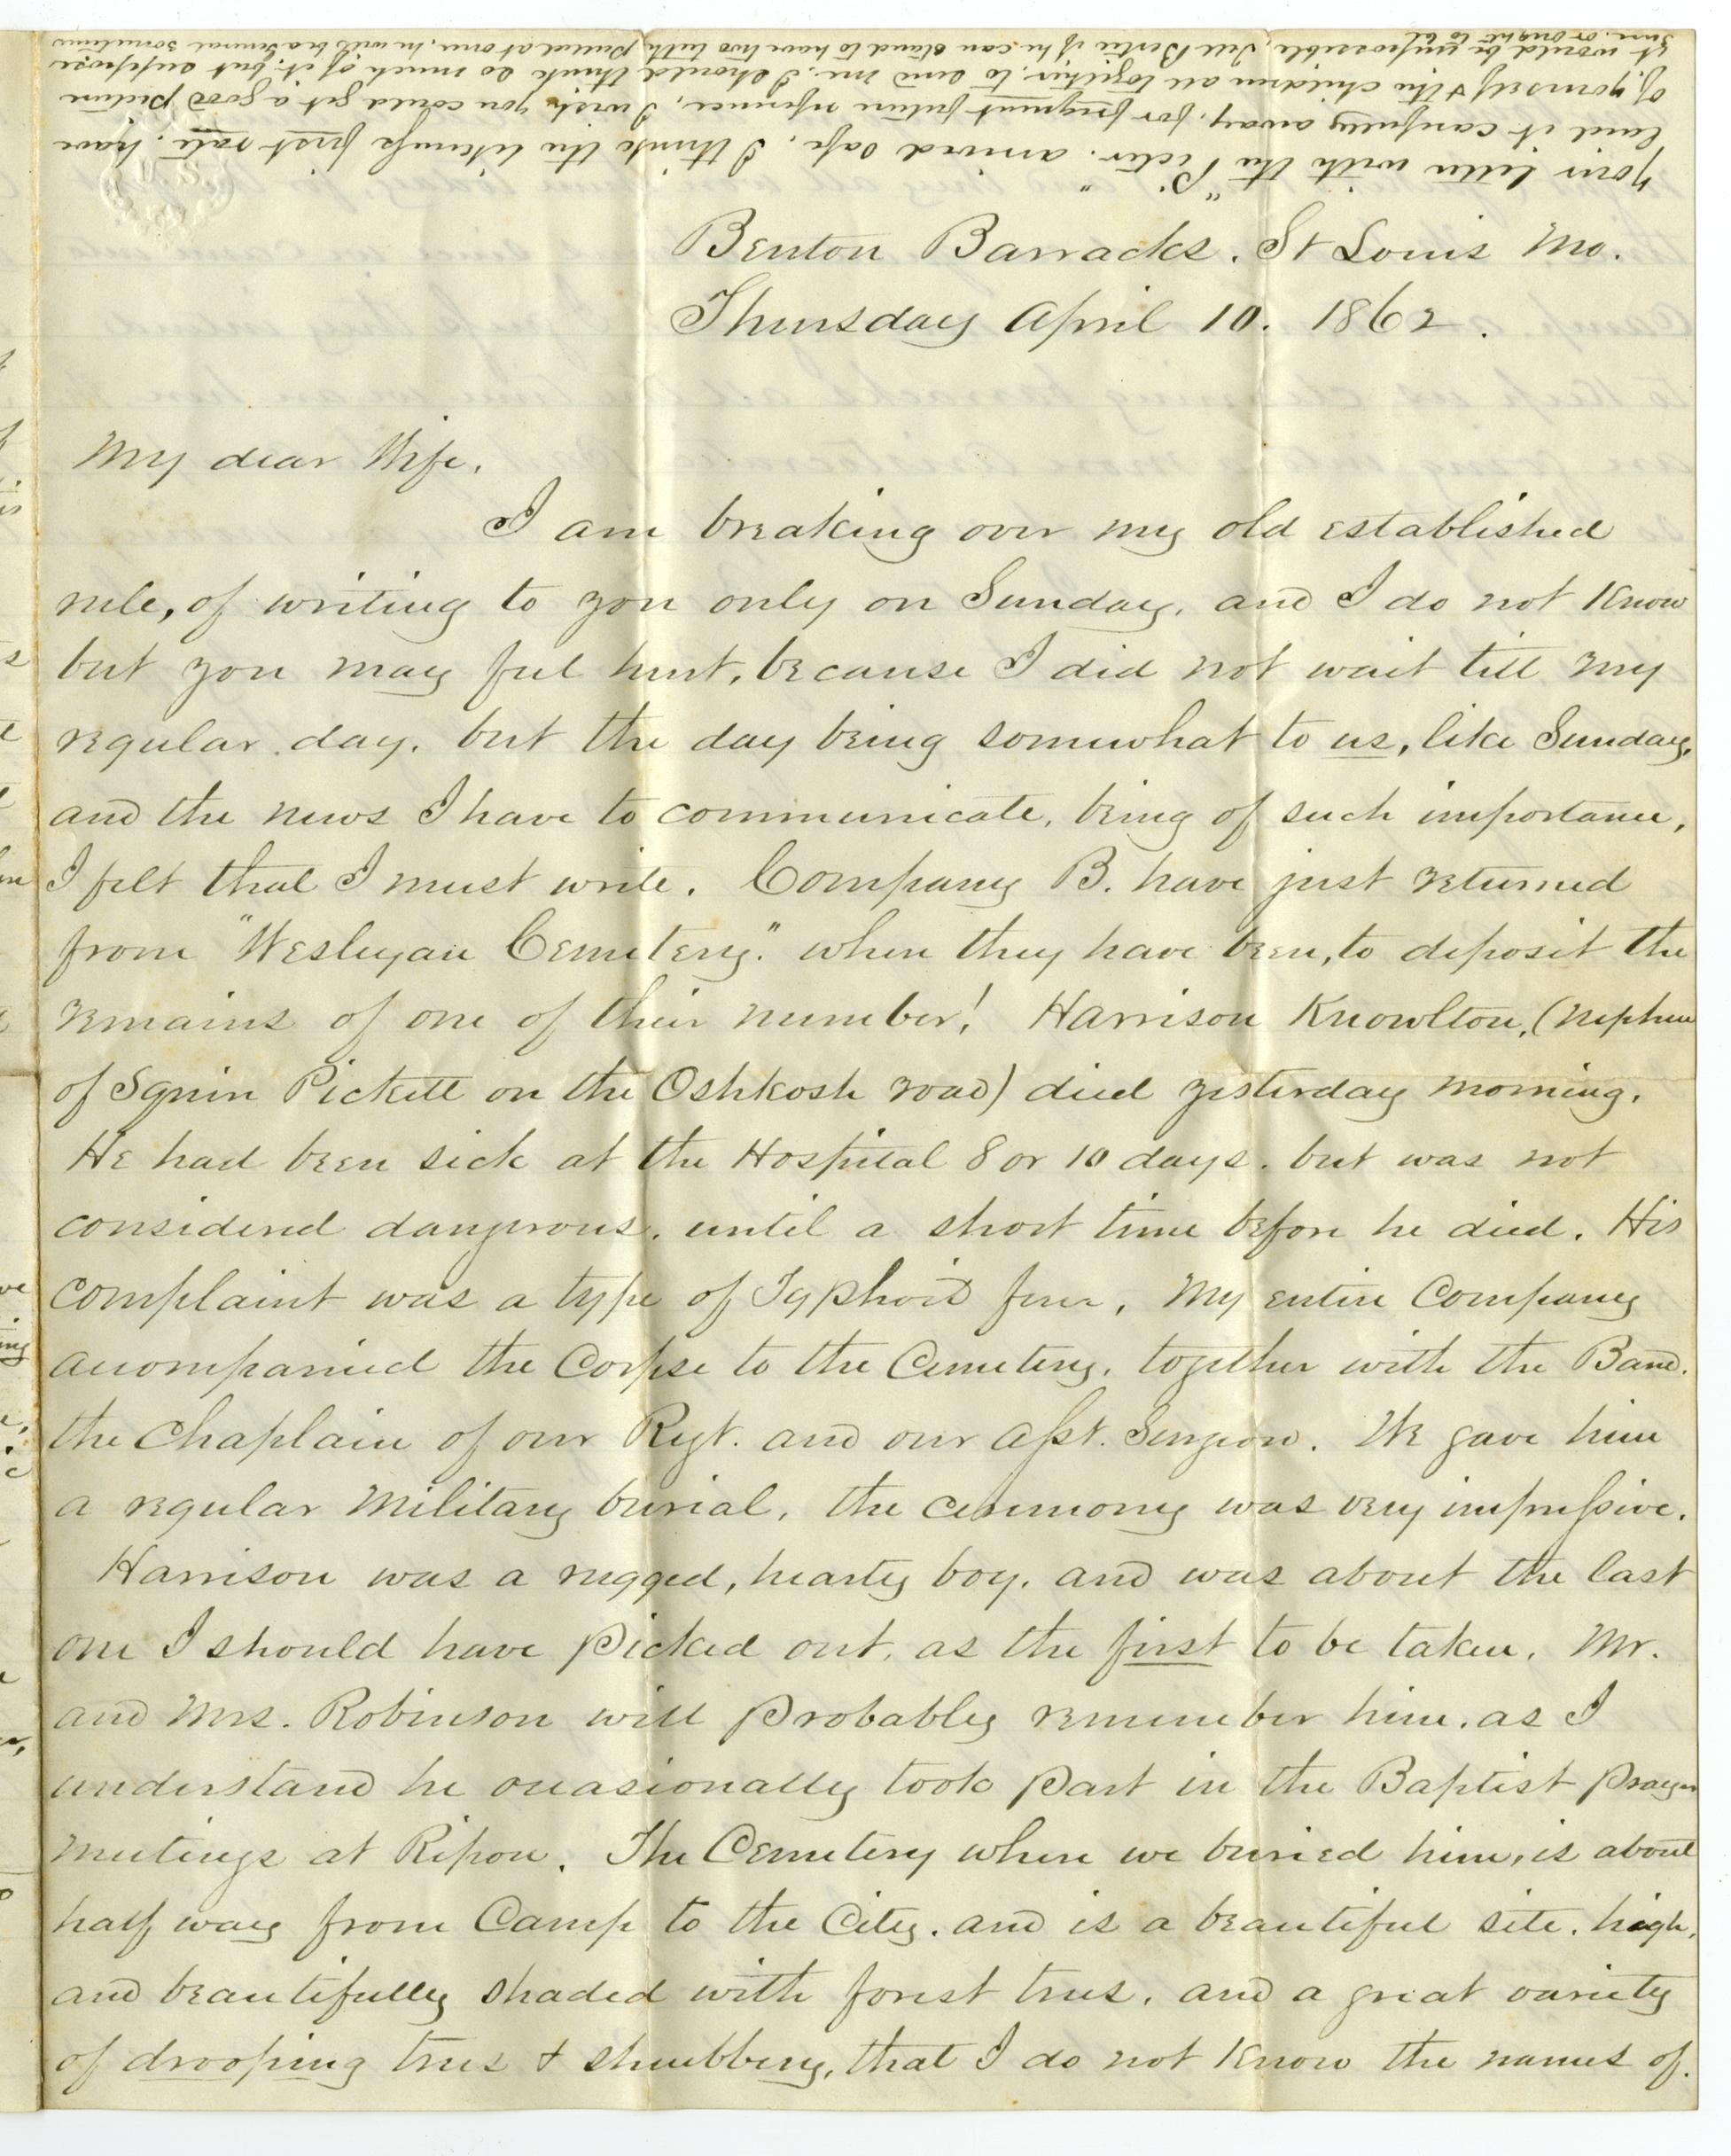 Benton Barracks. St Louis Mo.
Thursday April 10. 1862.
My dear Wife,
I am breaking over my old established
rule, of writing to you only on Sunday, and I do not know
but you may feel hurt, because I did not wait till my
regular day. but the day being somewhat to us, like Sunday,
and the news I have to communicate, being of such importance,
I felt that I must write. Company B. have just returned
from "Wesleyan Cemetery." where they have been, to deposit the
remains of one of their number! Harrison Knowlton, (nephew
of Squire Pickett on the Oshkosh road) died yesterday morning.
He had been sick at the Hospital 8 or 10 days. but was not
considered dangerous, until a short time before he died. His
complaint was a type of Typhoid fever, My entire Company
accompanied the Corpse to the Cemetery, together with the Band.
the Chaplain of our Regt. and our Asst. Surgeon. We gave him
a regular Military burial, the ceremony was very impressive.
Harrison was a rugged, hearty boy. and was about the last
one I should have picked out, as the first to be taken. Mr.
and Mrs. Robinson will probably remember him. as I
understand he occasionally took part in the Baptist prayer
meetings at Ripon. The Cemetery where we buried him, is about
half way from Camp to the City. and is a beautiful site. high,
and beautifully shaded with forest trees. and a great variety
of drooping trees & shrubbery, that I do not know the names of.
Your letter with the "Pictur." arrived safe, I think the likeness first rate, have
laid it carefully away, for frequent future reference, I wish you could get a good picture
of yourself & the children all together, to send me. I should think so much of it. but suppose
it would be impossible, Tell Bertie if he can stand to have two teeth pulled at once, he will be a General sometime
sure. or ought to be
U.S.